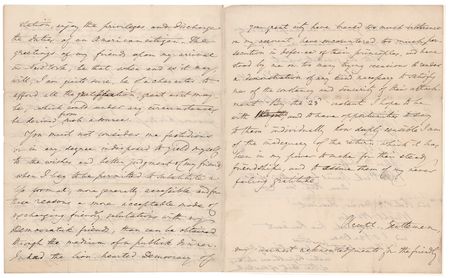 dition, enjoy the privileges and discharge
the duties of an American citizen. The
greetings of my friends upon my arrival
in be that when and as it may
will, I am quite sure, be of a character to
afford all the gratification, great as it may
be, which could under any circumstances
be derived from such a source.
You must not consider me fastidious
or in any degree indisposed to yield myself
to the wishes and better judgment of my friends
when I beg to be permitted to substitute a
less formal, more generally accessible and for
these reasons a more acceptable mode of
exchanging friendly salutations with my
Democratic friends, than can be obtained
through the medium of a public dinner.
The lion hearted Democracy of
your great city have traced too much
my account, have encountered too much persecution
in defence of their principles, and have
stood by me on too many trying occasions to render
a demonstration of any kind necessary to satisfy
me of the constancy and sincerity of their attachment.
By the 23d instant I hope to be
with and to have opportunity to say
to them individually how deeply sensible I am
of the inadequacy of the return which it has
been in my power to make for their steady
friendship, and to assure them of my never
failing gratitude.
Accept, Gentlemen,
my warmest acknowledgments for the friendly